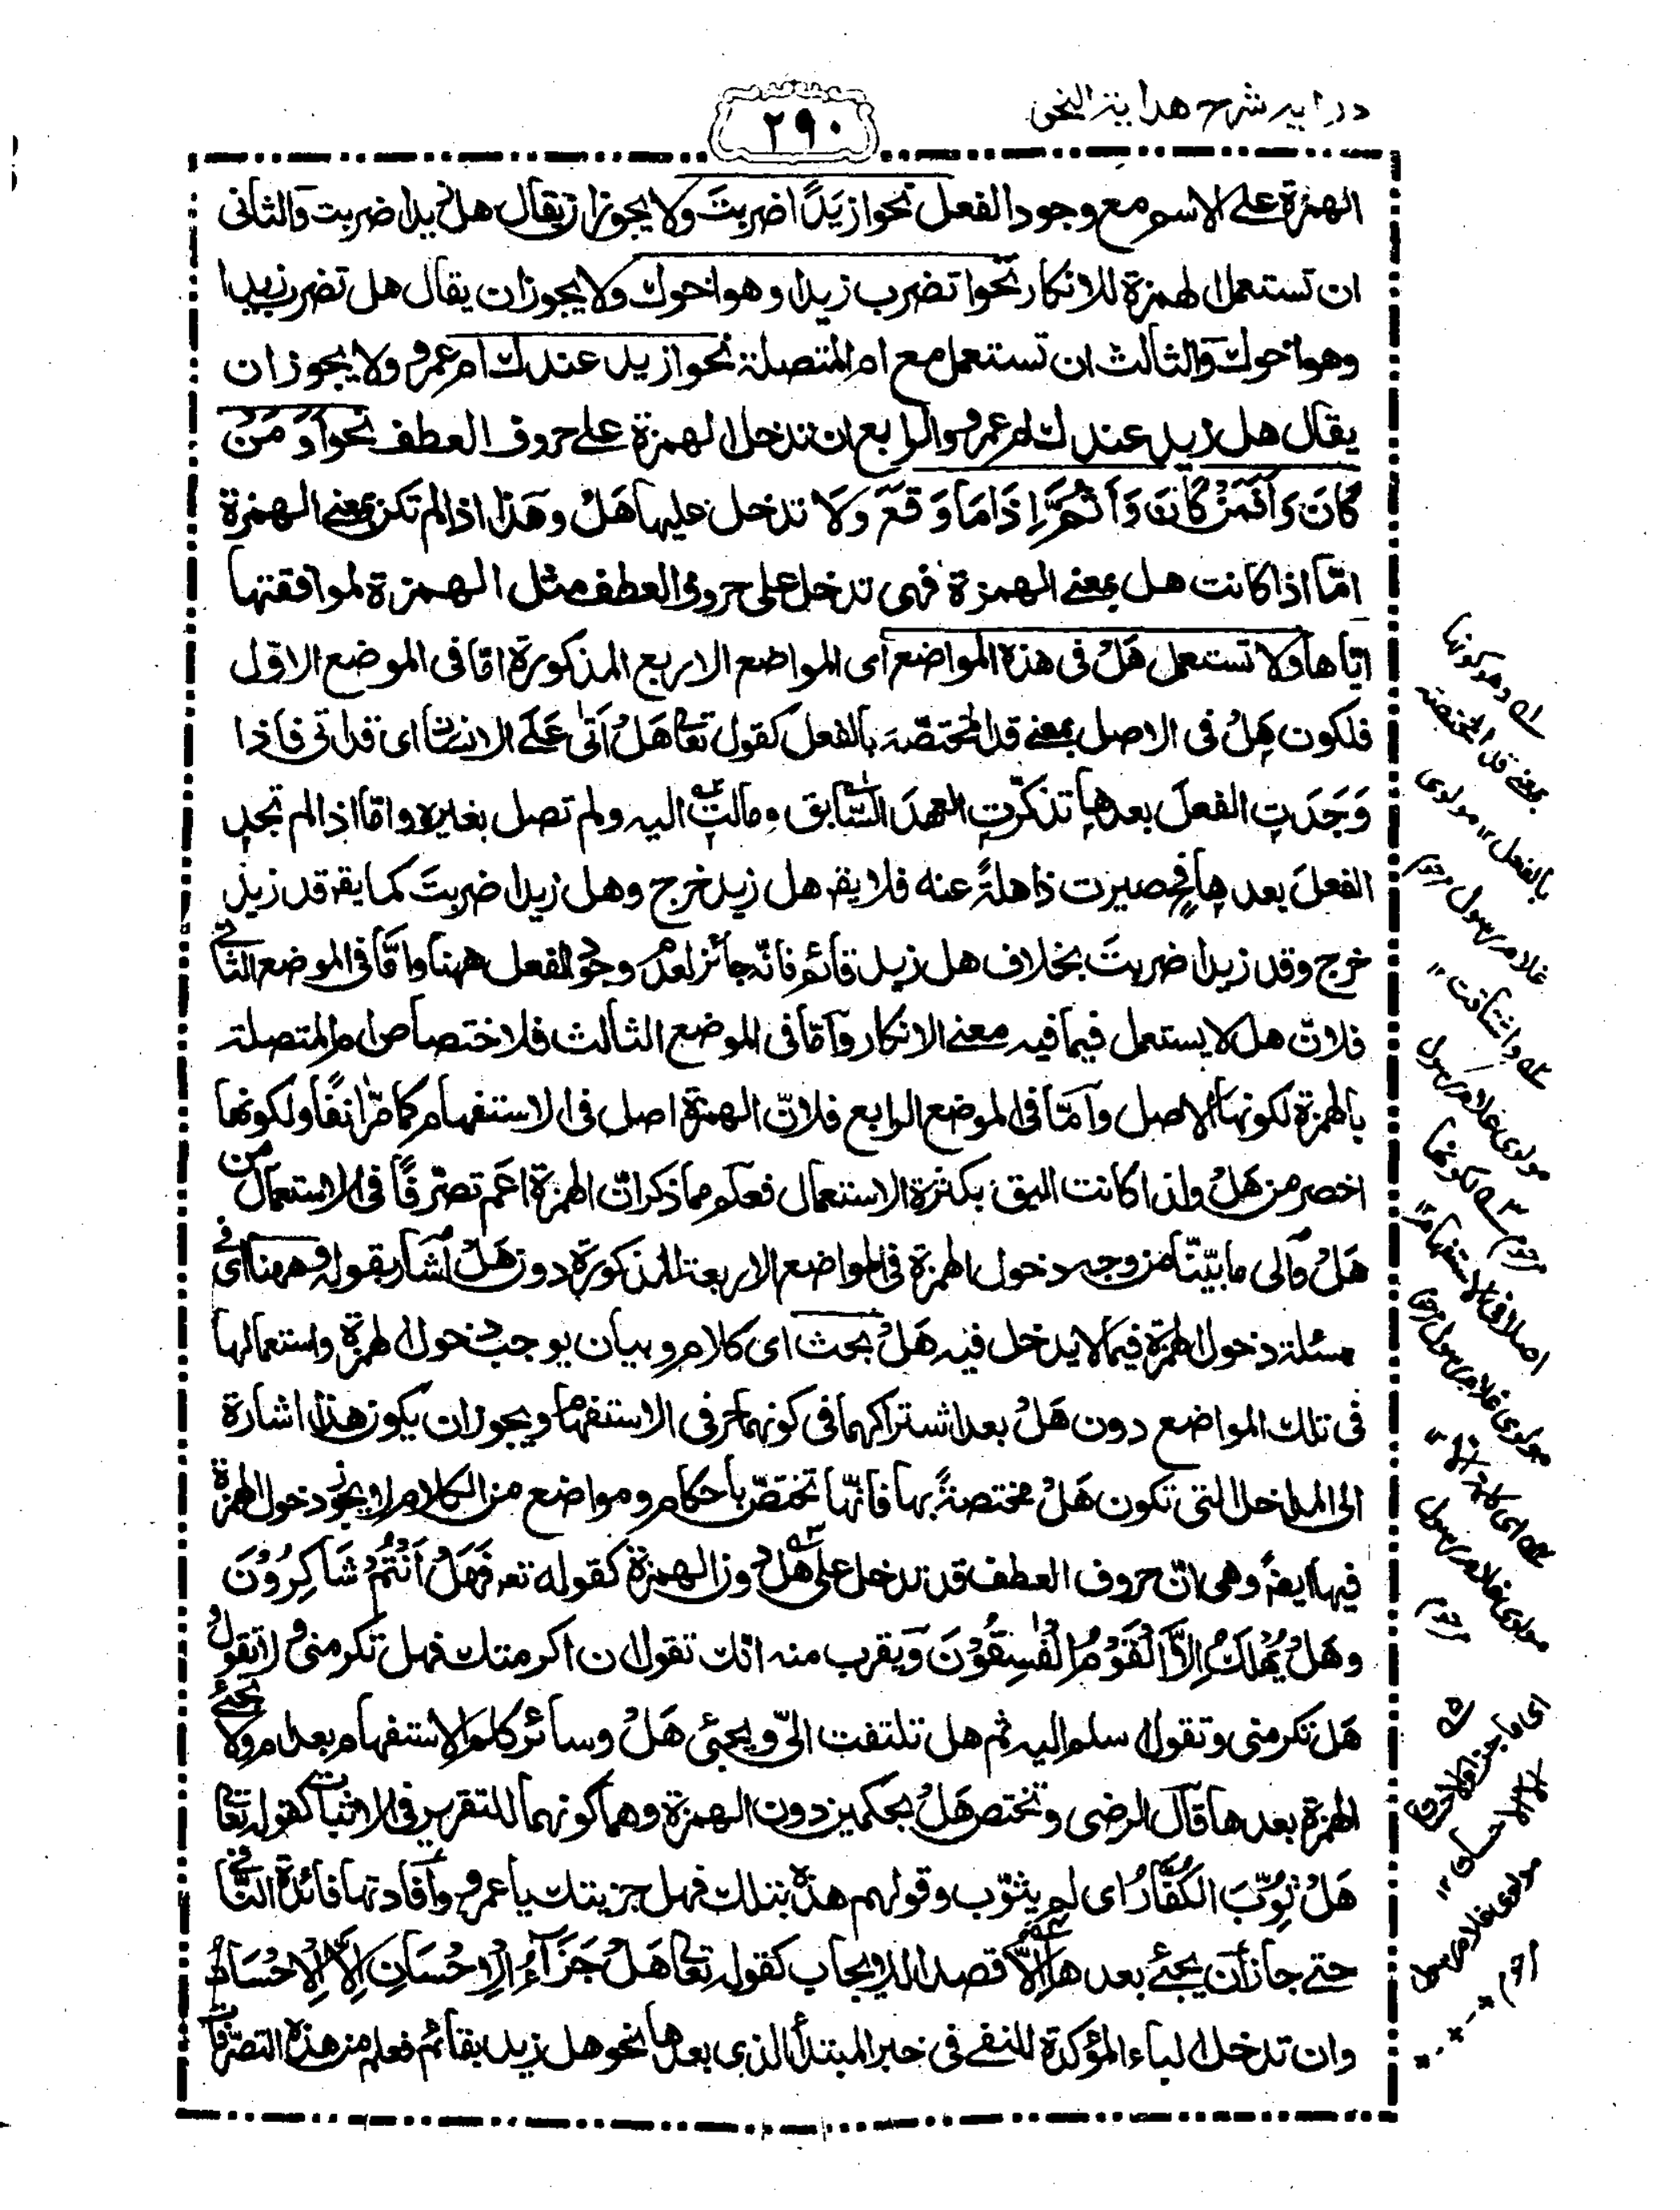 درايه شرح هداية النحو
٢٩٠
الهمزة على الاسم مع وجود الفعل نحو ازيدًا ضربتَ ولا يجوز ان يقال هل زيدا ضربت والثانى
ان تستعمل الهمزة للانكار نحو اتضرب زيدا وهو اخوك ولا يجوز ان يقال هل تضرب زيدا
وهو اخوك والثالث ان تستعمل مع ام المتصلة نحو ازيد عندك ام عمرو ولا يجوز ان
يقال هل زيد عندك ام عمرو والرابع ان تدخل الهمزة على حروف العطف نحو اَوَ مَنْ
كَانَ وَاَفَمَنْ كَانَ وَاَثُمَّ اِذَا مَا وَقَعَ وَلَا تدخل عليها هَلْ وهذا اذا لم تكن بمعنى الهمزة
امّا اذا كانت هل بمعنى الهمزة فهى تدخل على حروف العطف مثل الهمزة لموافقتها
ايّاها ولا تستعمل هَلْ فى هذه المواضع اى المواضع الاربع المذكورة امّا فى الموضع الاوّل
فلكون هَلْ فى الاصل بمعنى قد المختصّة بالفعل كقوله تعا هَلْ اَتٰى عَلَى الانسان اى قد اتى فاذا
وَجَدَتِ الفعلَ بعدها تذكّرتِ العهدَ السّابق ومالت اليه ولم تصل بغيره وامّا اذا لم تجد
الفعلَ بعدها فح صيرت ذاهلةً عنه فلا يقـ هل زيد خرج وهل زيدا ضربتَ كما يقـ قد زيد
خرج وقد زيدا ضربتَ بخلاف هل زيد قائم فانّه جائز لعدم وجود الفعل ههنا وامّا فى الموضع الثانى
فلانّ هل لا يستعمل فيما فيه معنى الانكار وامّا فى الموضع الثالث فلاختصاص ام المتصلة
بالهمزة لكونها الاصل وامّا فى الموضع الرابع فلانّ الهمزة اصل فى الاستفهام كما مرّ انفًا ولكونها
اخصر من هَلْ ولذا كانت اليق بكثرة الاستعمال فعلم مما ذكر انّ الهمزة اعم تصرّفًا فى الاستعمال من
هَلْ والى ما بيّنّا من وجه دخول الهمزة فى المواضع الاربعة المذكورة دون هَلْ اشار بقوله وههنا اى فى
مسئلة دخول الهمزة فيما لا يدخل فيه هَلْ بحث اى كلام وبيان يوجب دخول الهمزة واستعمالها
فى تلك المواضع دون هَلْ بعد اشتراكهما فى كونهما حرفى الاستفهام ويجوز ان يكون هذا اشارة
الى المداخل التى تكون هَلْ مختصةً بها فانّها تختصّ باحكام ومواضع من الكلام لا يجوز دخول الهمزة
فيها ايضً وهى انّ حروف العطف قد تدخل على هل دون الهمزة كقوله تعـ فَهَلْ اَنْتُمْ شَاكِرُوْنَ
وهَلْ يُهْلَكُ اِلَّا الْقَوْمُ الْفٰسِقُوْنَ ويقرب منه انك تقول ان اكرمتك فهل تكرمنى ولا تقول
هَل تكرمنى وتقول سلم اليه ثم هل تلتفت الىّ ويجئى هَلْ وسائر كلم الاستفهام بعد ام ولا يجئ
الهمزة بعدها قال الرضى وتختص هَلْ بحكمين دون الهمزة وهما كونهما للتقرير فى الاثبات كقوله تعا
هَلْ ثُوِّبَ الْكُفَّارُ اى لم يثوّب وقولهم هذه بتلك فهل جزيتك يا عمرو وافادتها فائدة النافى
حتى جاز ان يجئ بعدها اِلّا قصدا للايجاب كقوله تعا هَلْ جَزَآءُ الْاِحْسَانِ اِلَّا الْاِحْسَانُ
وان تدخل الباء المؤكدة للنفى فى خبر المبتدأ الذى بعدها نحو هل زيد بقائم فعلم من هذه التصرّفات
له وهو كونها
بمعنى قد المختصة
بالفعل" مولوى
غلام رسول مرحوم
واشتاقت "
مولوى غلام رسول
مرحوم
لكونها
اصلا فى الاستفهام"
مولوى غلام رسول مرحوم
اى
مولوى غلام رسول
مرحوم
اى ما جزاء الاحسان
الا الاحسان "
مولوى غلام رسول
مرحوم